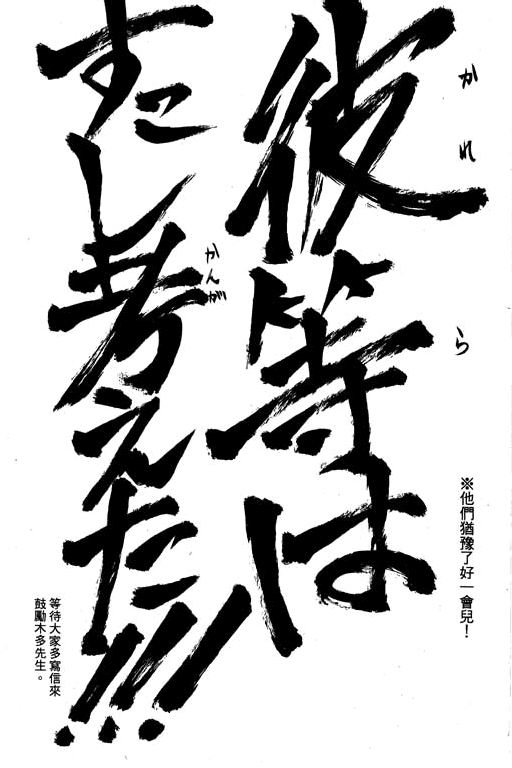 彼等は
かれら
すこし考えた!!!
かんが
※他們猶豫了好一會兒！
等待大家多寫信來
鼓勵木多先生。